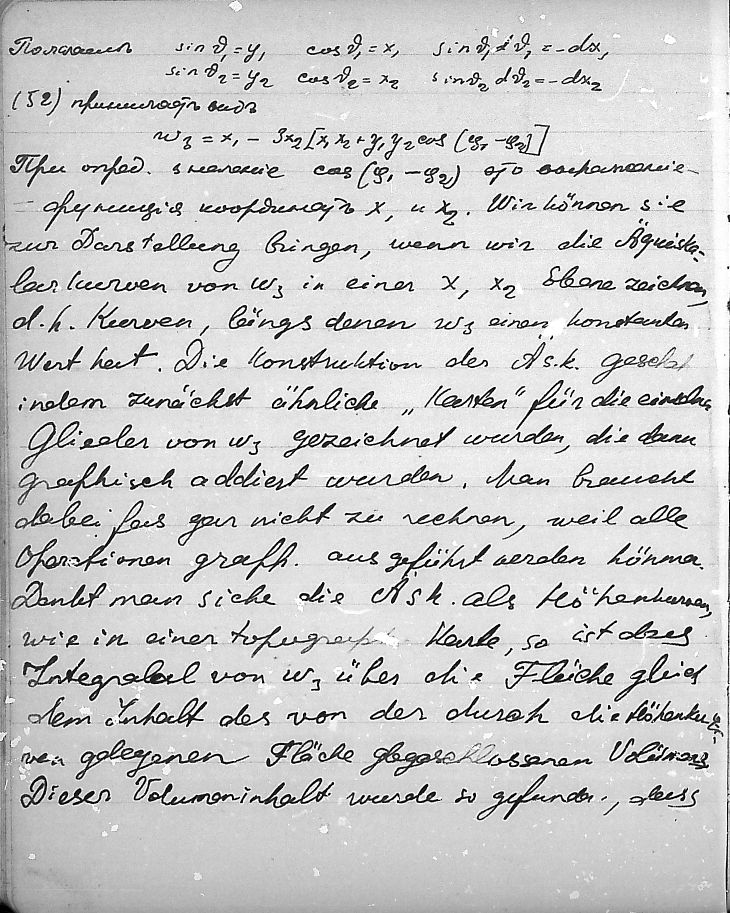 Полагаемъ sin ϑ₁ = y₁ cos ϑ₁ = x₁ sin ϑ₁ dϑ₁ = -dx₁
sin ϑ₂ = y₂ cos ϑ₂ = x₂ sin ϑ₂ dϑ₂ = -dx₂
(52) принимаетъ видъ
w₃ = x₁ - 3x₂[x₁x₂ + y₁y₂ cos (φ₁ - φ₂)]
При опред. значенiе cos (φ₁ - φ₂) это выраженiе
функцiя координатъ x₁ и x₂. Wir können sie
zur Darstellung bringen, wenn wir die Äquiska-
larkurven von w₃ in einer x₁ x₂ Ebene zeichnen,
d.h. Kurven, längs denen w₃ einen konstanten
Wert hat. Die Konstruktion der Ä.s.k. geschah
indem zunächst ähnliche „Karten" für die einzelnen
Glieder von w₃ gezeichnet wurden, die dann
graphisch addiert wurden. Man braucht
dabei fas gar nicht zu rechnen, weil alle
Operationen graph. ausgeführt werden können.
Denkt man siche die Ä.s.k. als Höhenkurven,
wie in einer topograph Karte, so ist dzs
Integralal von w₃ über die Fläche gleich
dem Inhalt des von der durch die Höhenkur-
ven gelegenen Fläche Volumens.
Dieser Volumeninhalt wurde so gefunden, dass